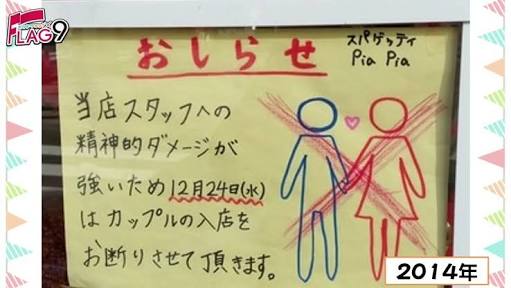 FLAG9
おしらせ
スパゲッティ
Pia Pia
当店スタッフへの
精神的ダメージが
強いため12月24日(水)
はカップルの入店を
お断りさせて頂きます。
2014年